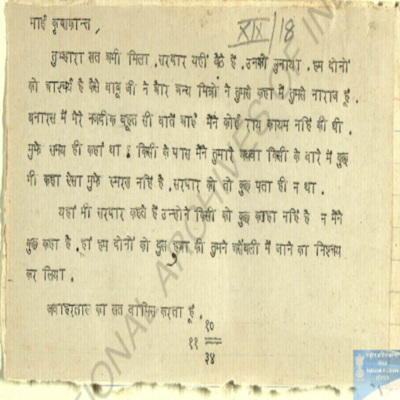 भाई कृष्णकान्त,
XIX/18
तुम्हारा खत अभी मिला. सरदार यहीं बैठे हैं. उनको सुनाया. हम दोनों
को आश्चर्य है कैसे बापू जी ने और अन्य मित्रों ने तुमसे कहा मैं तुमसे नाराज हूं.
बनारस में मेरे नजदीक बहूत सी बातें आईं मैंने कोई राय कायम नहिं की थी.
मुझे समय ही कहां था? किसी के पास मैंने तुमारे अथवा किसी के बारे में कुछ
भी कहा ऐसा मुझे स्मरण नहिं है. सरदार को तो कुछ पता ही न था.
यहां भी सरदार कहते हैं उन्होंने किसी को कुछ कहा नहिं है न मैंने
कुछ कहा है. हां हम दोनों को दुख हुआ की तुमने कौंसली में जाने का निश्चय
कर लिया.
जवाहरलाल का खत वापिस करता हूं.
१०
११
३४
NATIONAL ARCHIVES OF IN